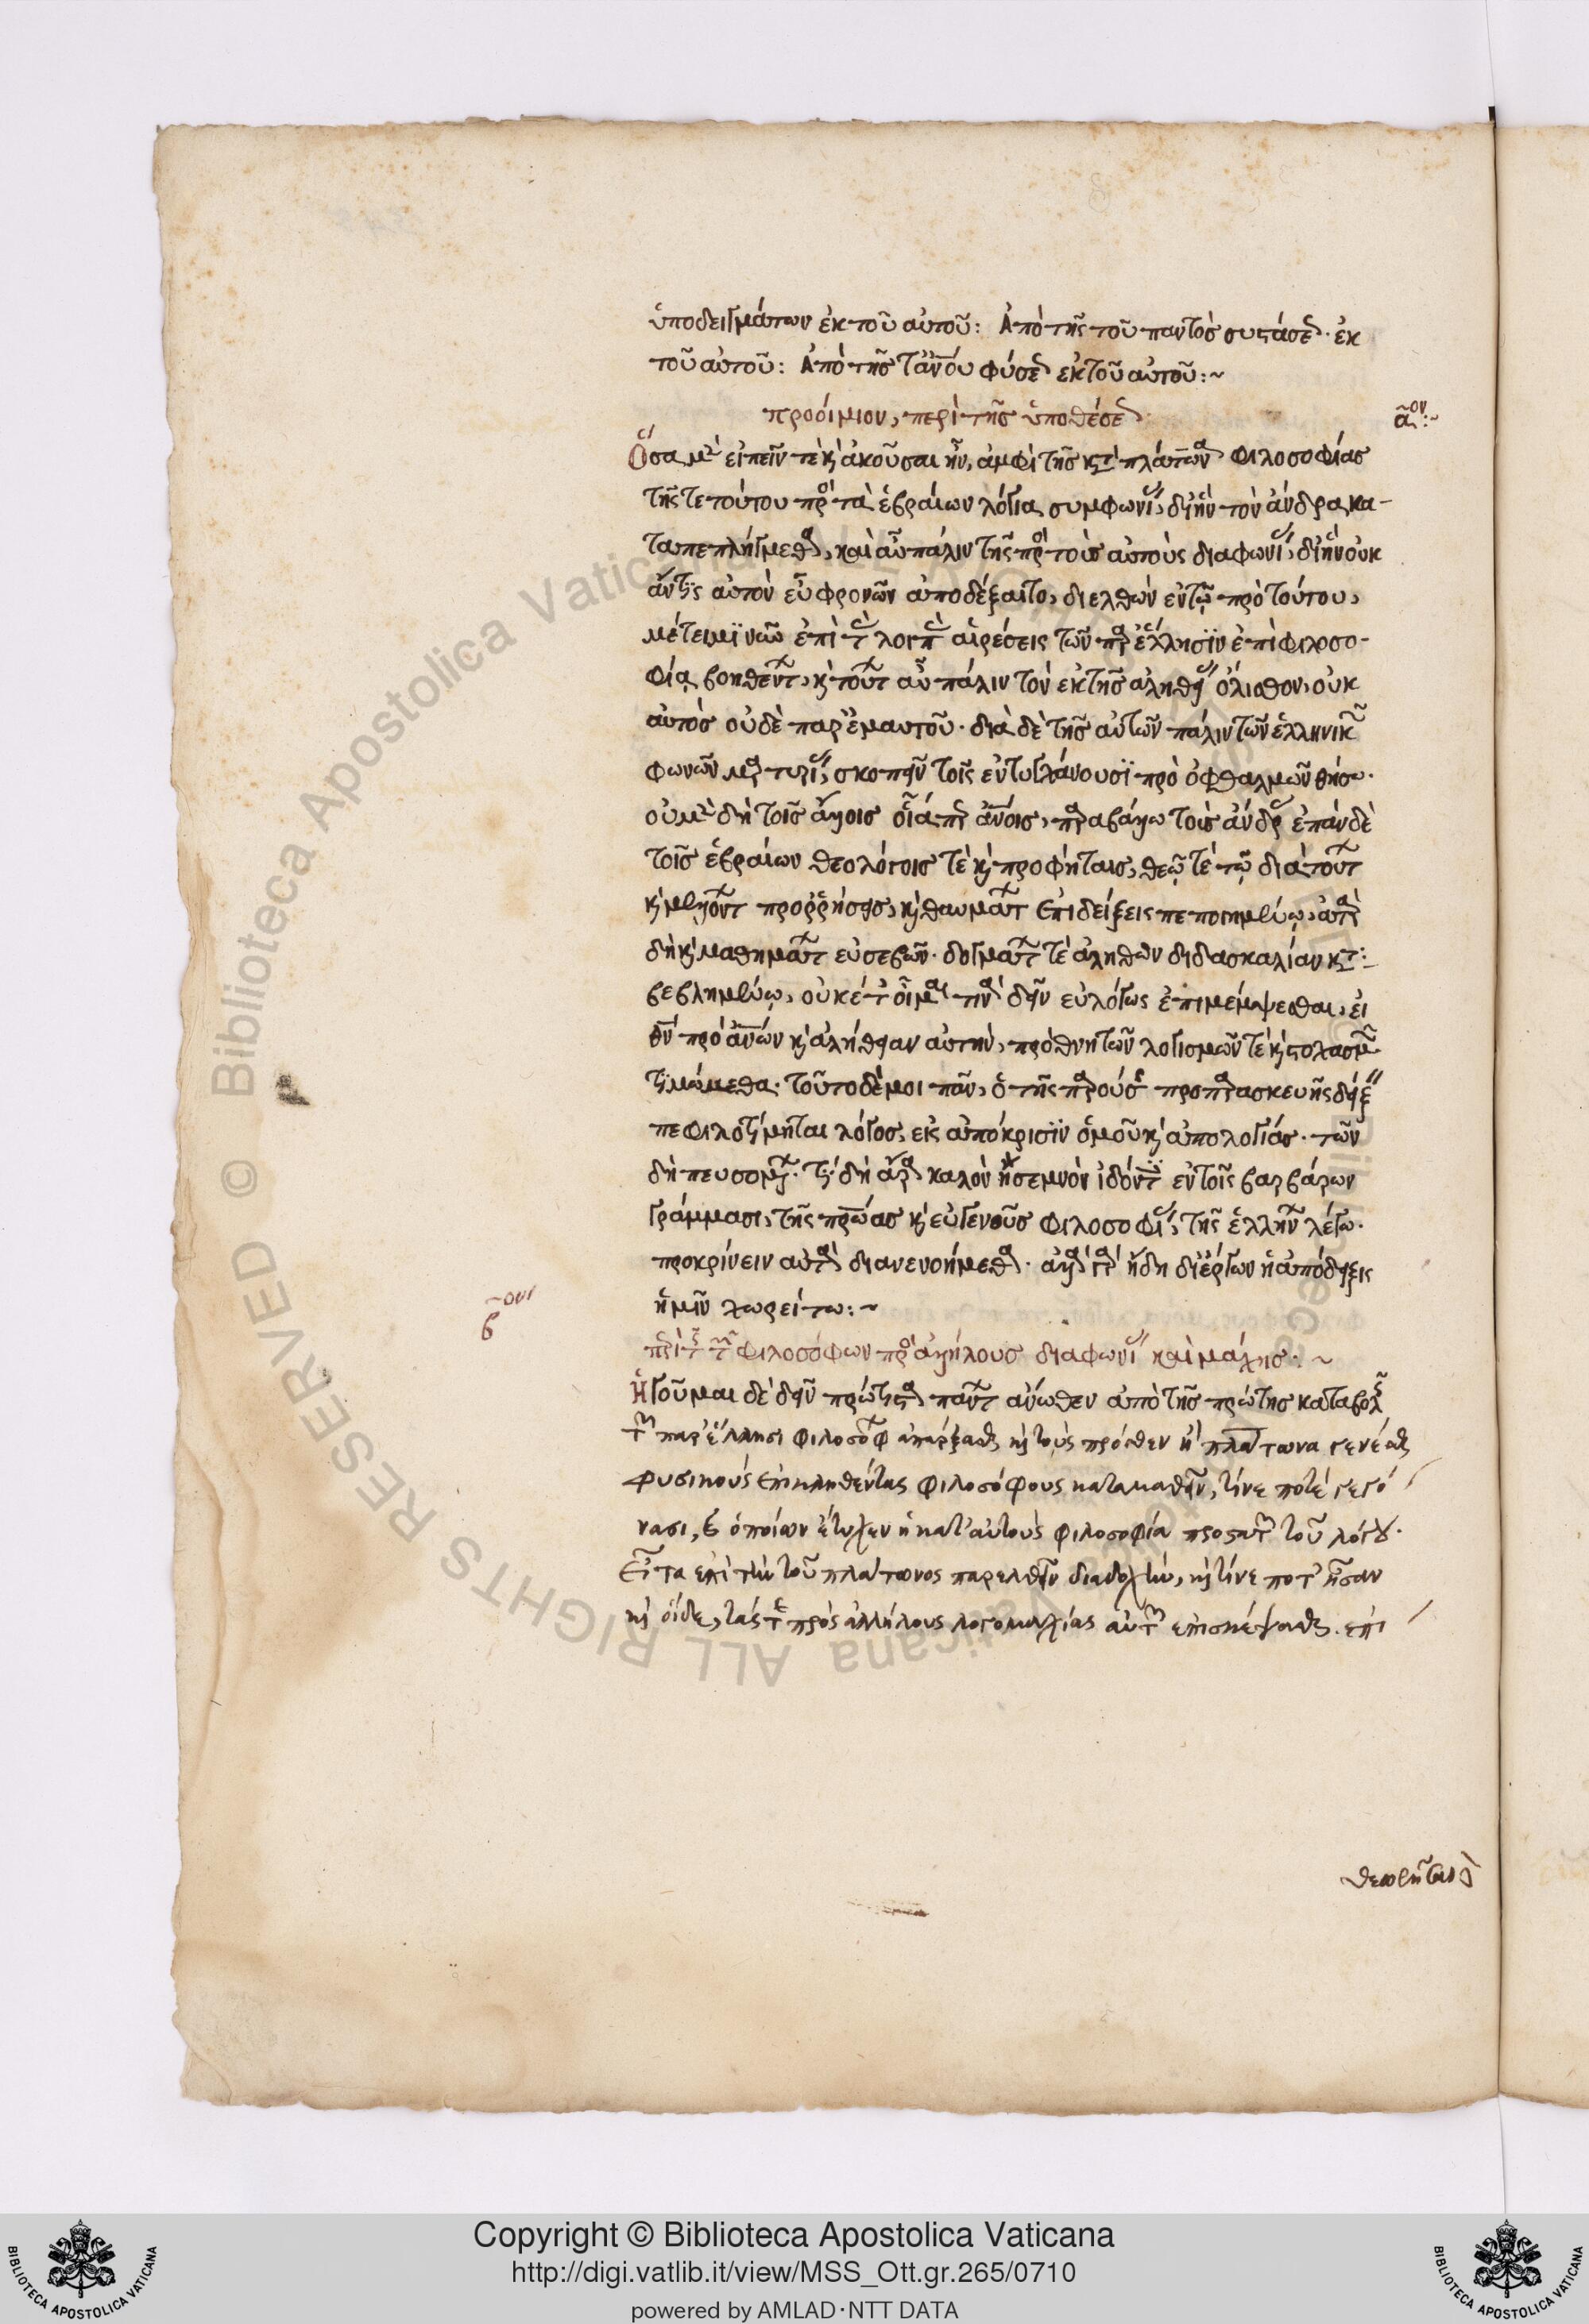 ὑποδειγμάτων ἐκ τοῦ αὐτοῦ: Ἀπὸ τῆς τοῦ παντὸς συστάσεως. ἐκ
τοῦ αὐτοῦ: Ἀπὸ τῆς τ ἀνου φύσεως ἐκ τοῦ αὐτοῦ:~
προοίμιον, περὶ τῆς ὑποθέσεως
α ον:~
Ὅσα μὲν εἰπεῖν τὲ καὶ ἀκοῦσαι ἦν, ἀμφὶ τῆς κατὰ πλάτωνα φιλοσοφίας
τῆς τε τούτου πρὸς τὰ ἑβραίων λόγια συμφωνίας, δι' ἣν τὸν ἄνδρα κα-
ταπεπλήγμεθα, καὶ αὖ πάλιν τῆς πρὸς τοὺς αὐτοὺς διαφωνίας, δι' ἣν οὐκ
ἄν τις αὐτὸν εὖ φρονῶν ἀποδέξαιτο, διελθὼν ἐν τῷ πρὸ τούτου,
μέτειμι νῦν ἐπὶ τὰς λοιπὰς αἱρέσεις τῶν παρ' ἕλλησιν ἐπὶ φιλοσο-
φίᾳ βοηθέντων, καὶ τούτων αὖ πάλιν τὸν ἐκ τῆς ἀληθείας ὄλισθον, οὐκ
αὐτὸς οὐδὲ παρ' ἐμαυτοῦ. διὰ δὲ τῆς αὐτῶν πάλιν τῶν ἑλληνικῶν
φωνῶν μαρτυρίας, σκοπεῖν τοῖς ἐντυγχάνουσι πρὸ ὀφθαλμῶν θήσω.
οὐ μὲν δὴ τοῖς ἄλλοις οἷάπερ ἀνοις, παραβάλλω τοὺς ἄνδρας ἐπὰν δὲ
τοῖς ἑβραίων θεολόγοις τὲ καὶ προφήταις, θεῷ τὲ τῷ διὰ τούτων
καὶ μελλόντων προρρήσεις, καὶ θαυμάτων ἐπιδείξεις πεποιημένῳ, ἀτὰρ
δὴ καὶ μαθημάτων εὐσεβῶν. δογμάτων τὲ ἀληθῶν διδασκαλίαν κατα-
βεβλημένῳ, οὐκέτ' οἶμαί τινα δεῖν εὐλόγως ἐπιμέμψεσθαι, εἰ
θν πρὸ ἀνων καὶ ἀλήθειαν αὐτὴν, πρὸ θνητῶν λογισμῶν τὲ καὶ στοχασμῶν
τιμώμεθα. τοῦτο δέ μοι πᾶν, ὁ τῆς παρούσης προπαρασκευῆς δείξειν
πεφιλοτίμηται λόγος, εἰς ἀπόκρισιν ὁμοῦ καὶ ἀπολογίας. τῶν
δὴ πευσομένων. τί δὴ ἄρα καλὸν ἢ σεμνὸν ἰδόντες ἐν τοῖς βαρβάρων
γράμμασι, τῆς πρώας καὶ εὐγενοῦς φιλοσοφίας, τῆς ἑλλήνων λέγω.
προκρίνειν αὐτὰ διανενοήμεθα. ἀλλὰ γὰρ ἤδη δι' ἔργων ἡ ἀπόδειξις
ἡμῖν χωρείτω:~
β ον
περὶ τῆς τῶν φιλοσόφων πρὸς ἀλλήλους διαφωνίας καὶ μάχης.~
Ἡγοῦμαι δὲ δεῖν πρώτιστα πάντων ἄνωθεν ἀπὸ τῆς πρώτης καταβολῆς
τῶν παρ' ἕλλησι φιλοσόφων ἀπάρξασθαι καὶ τοὺς πρόσθεν ἢ πλάτωνα γενέσθαι
φυσικοὺς ἐπικληθέντας φιλοσόφους καταμαθεῖν, τίνες ποτὲ γεγό
νασι, καὶ ὁποίων ἔτυχεν ἡ κατ' αὐτοὺς φιλοσοφία προστατῶν τοῦ λόγου.
Εἶτα ἐπὶ τὴν τοῦ πλάτωνος παρελθεῖν διαδοχὴν, καὶ τίνες ποτ' ἦσαν
καὶ οἵδε, τάς τε πρὸς ἀλλήλους λογομαχίας αὐτῶν ἐπισκέψασθαι. ἐπι
Copyright © Biblioteca Apostolica Vaticana
http://digi.vatlib.it/view/MSS_Ott.gr.265/0710
powered by AMLAD·NTT DATA
BIBLIOTECA APOSTOLICA VATICANA
BIBLIOTECA APOSTOLICA VATICANA